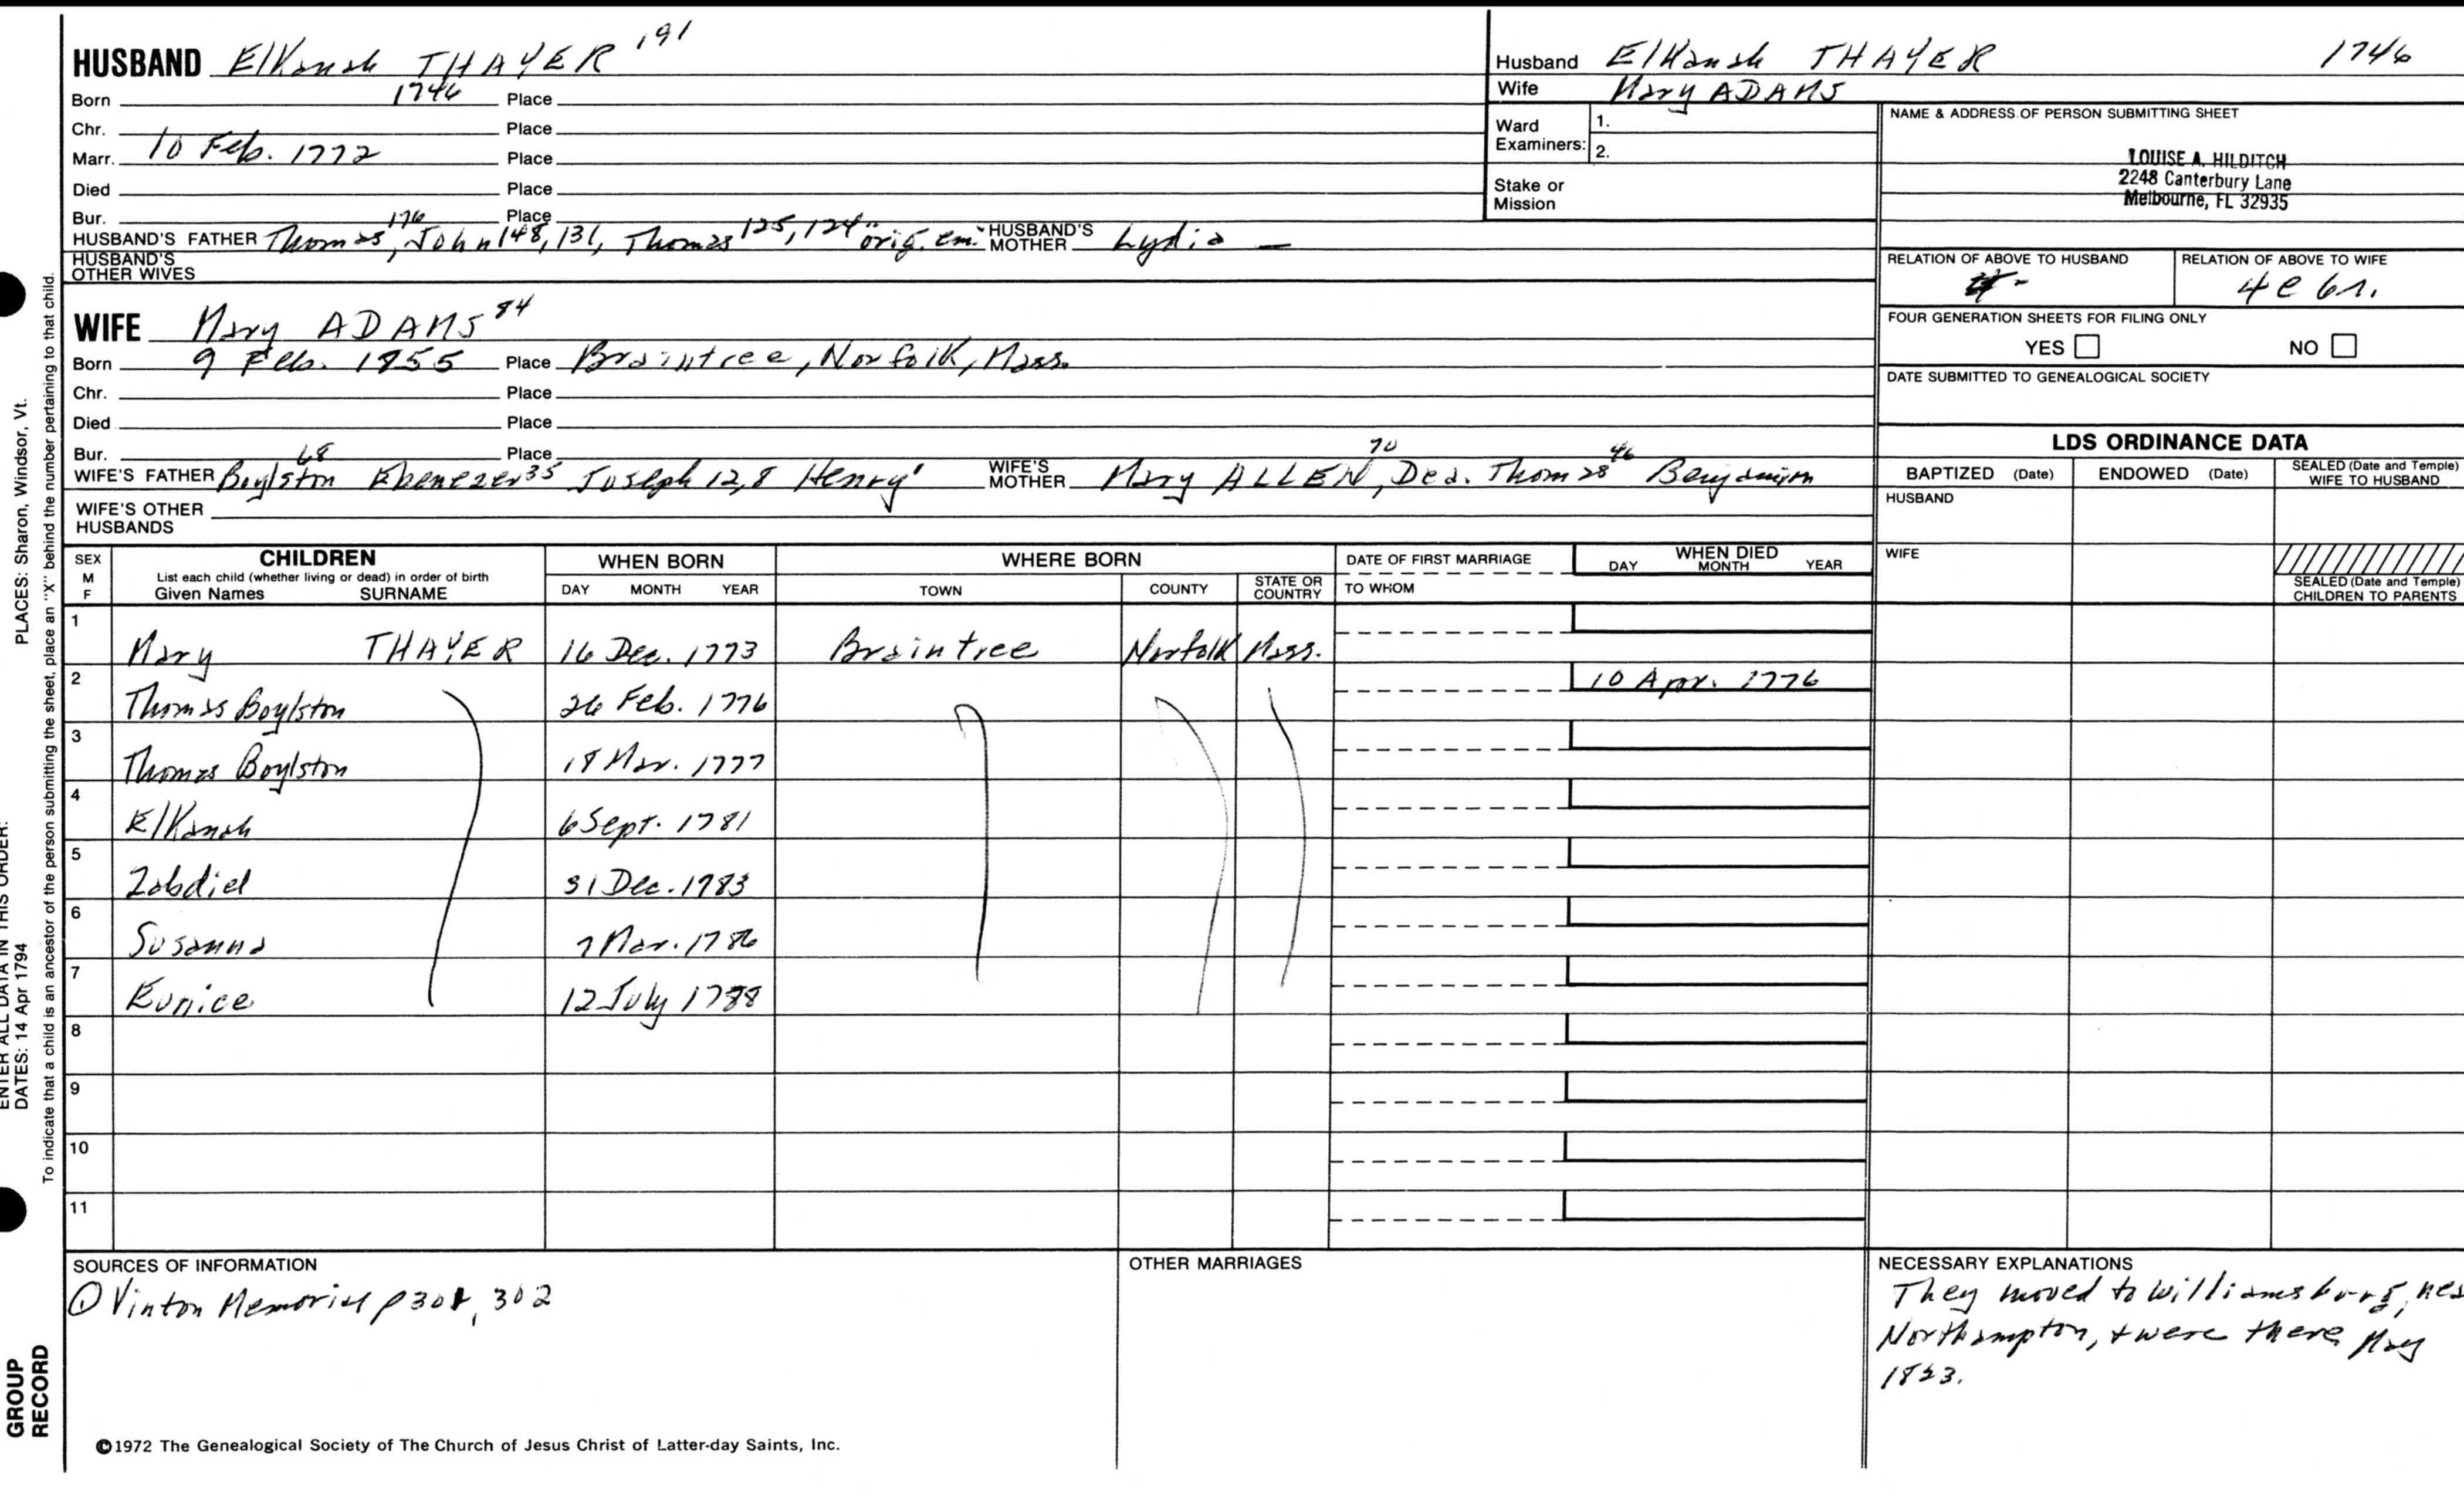 HUSBAND Elkanah THAYER 191
Born 1746 Place
Chr. Place
Marr. 10 Feb. 1772 Place
Died Place
Bur. Place
HUSBAND'S FATHER Thomas 176, John 148, 131, Thomas 125, 124 "orig. em." HUSBAND'S MOTHER Lydia —
HUSBAND'S OTHER WIVES
WIFE Mary ADAMS 84
Born 9 Feb. 1755 Place Braintree, Norfolk, Mass.
Chr. Place
Died Place
Bur. Place
WIFE'S FATHER Boylston 68 Ebenezer 35 Joseph 12, 8 Henry 1 WIFE'S MOTHER Mary ALLEN 70, Dea. Thomas 46 Benjamin
WIFE'S OTHER HUSBANDS
Husband Elkanah THAYER 1746
Wife Mary ADAMS
Ward Examiners: 1.
2.
Stake or Mission
NAME & ADDRESS OF PERSON SUBMITTING SHEET
LOUISE A. HILDITCH
2248 Canterbury Lane
Melbourne, FL 32935
RELATION OF ABOVE TO HUSBAND RELATION OF ABOVE TO WIFE
4c 6r.
FOUR GENERATION SHEETS FOR FILING ONLY
YES NO
DATE SUBMITTED TO GENEALOGICAL SOCIETY
LDS ORDINANCE DATA
BAPTIZED (Date) ENDOWED (Date) SEALED (Date and Temple) WIFE TO HUSBAND
HUSBAND
WIFE
SEALED (Date and Temple) CHILDREN TO PARENTS
SEX M F
CHILDREN
List each child (whether living or dead) in order of birth
Given Names SURNAME
WHEN BORN
DAY MONTH YEAR
WHERE BORN
TOWN COUNTY STATE OR COUNTRY
DATE OF FIRST MARRIAGE
TO WHOM
WHEN DIED
DAY MONTH YEAR
1 Mary THAYER 16 Dec. 1773 Braintree Norfolk Mass.
2 Thomas Boylston 26 Feb. 1776 10 Apr. 1776
3 Thomas Boylston 18 Mar. 1777
4 Elkanah 6 Sept. 1781
5 Zabdiel 31 Dec. 1783
6 Susanna 7 Mar. 1786
7 Eunice 12 July 1788
8
9
10
11
SOURCES OF INFORMATION
① Vinton Memorial p 301, 302
OTHER MARRIAGES
NECESSARY EXPLANATIONS
They moved to Williamsburg,
Northampton, + were there May
1823.
©1972 The Genealogical Society of The Church of Jesus Christ of Latter-day Saints, Inc.
PLACES: Sharon, Windsor, Vt.
ENTER ALL DATA IN THIS ORDER:
DATES: 14 Apr 1794
To indicate that a child is an ancestor of the person submitting the sheet, place an "X" behind the number pertaining to that child.
GROUP
RECORD